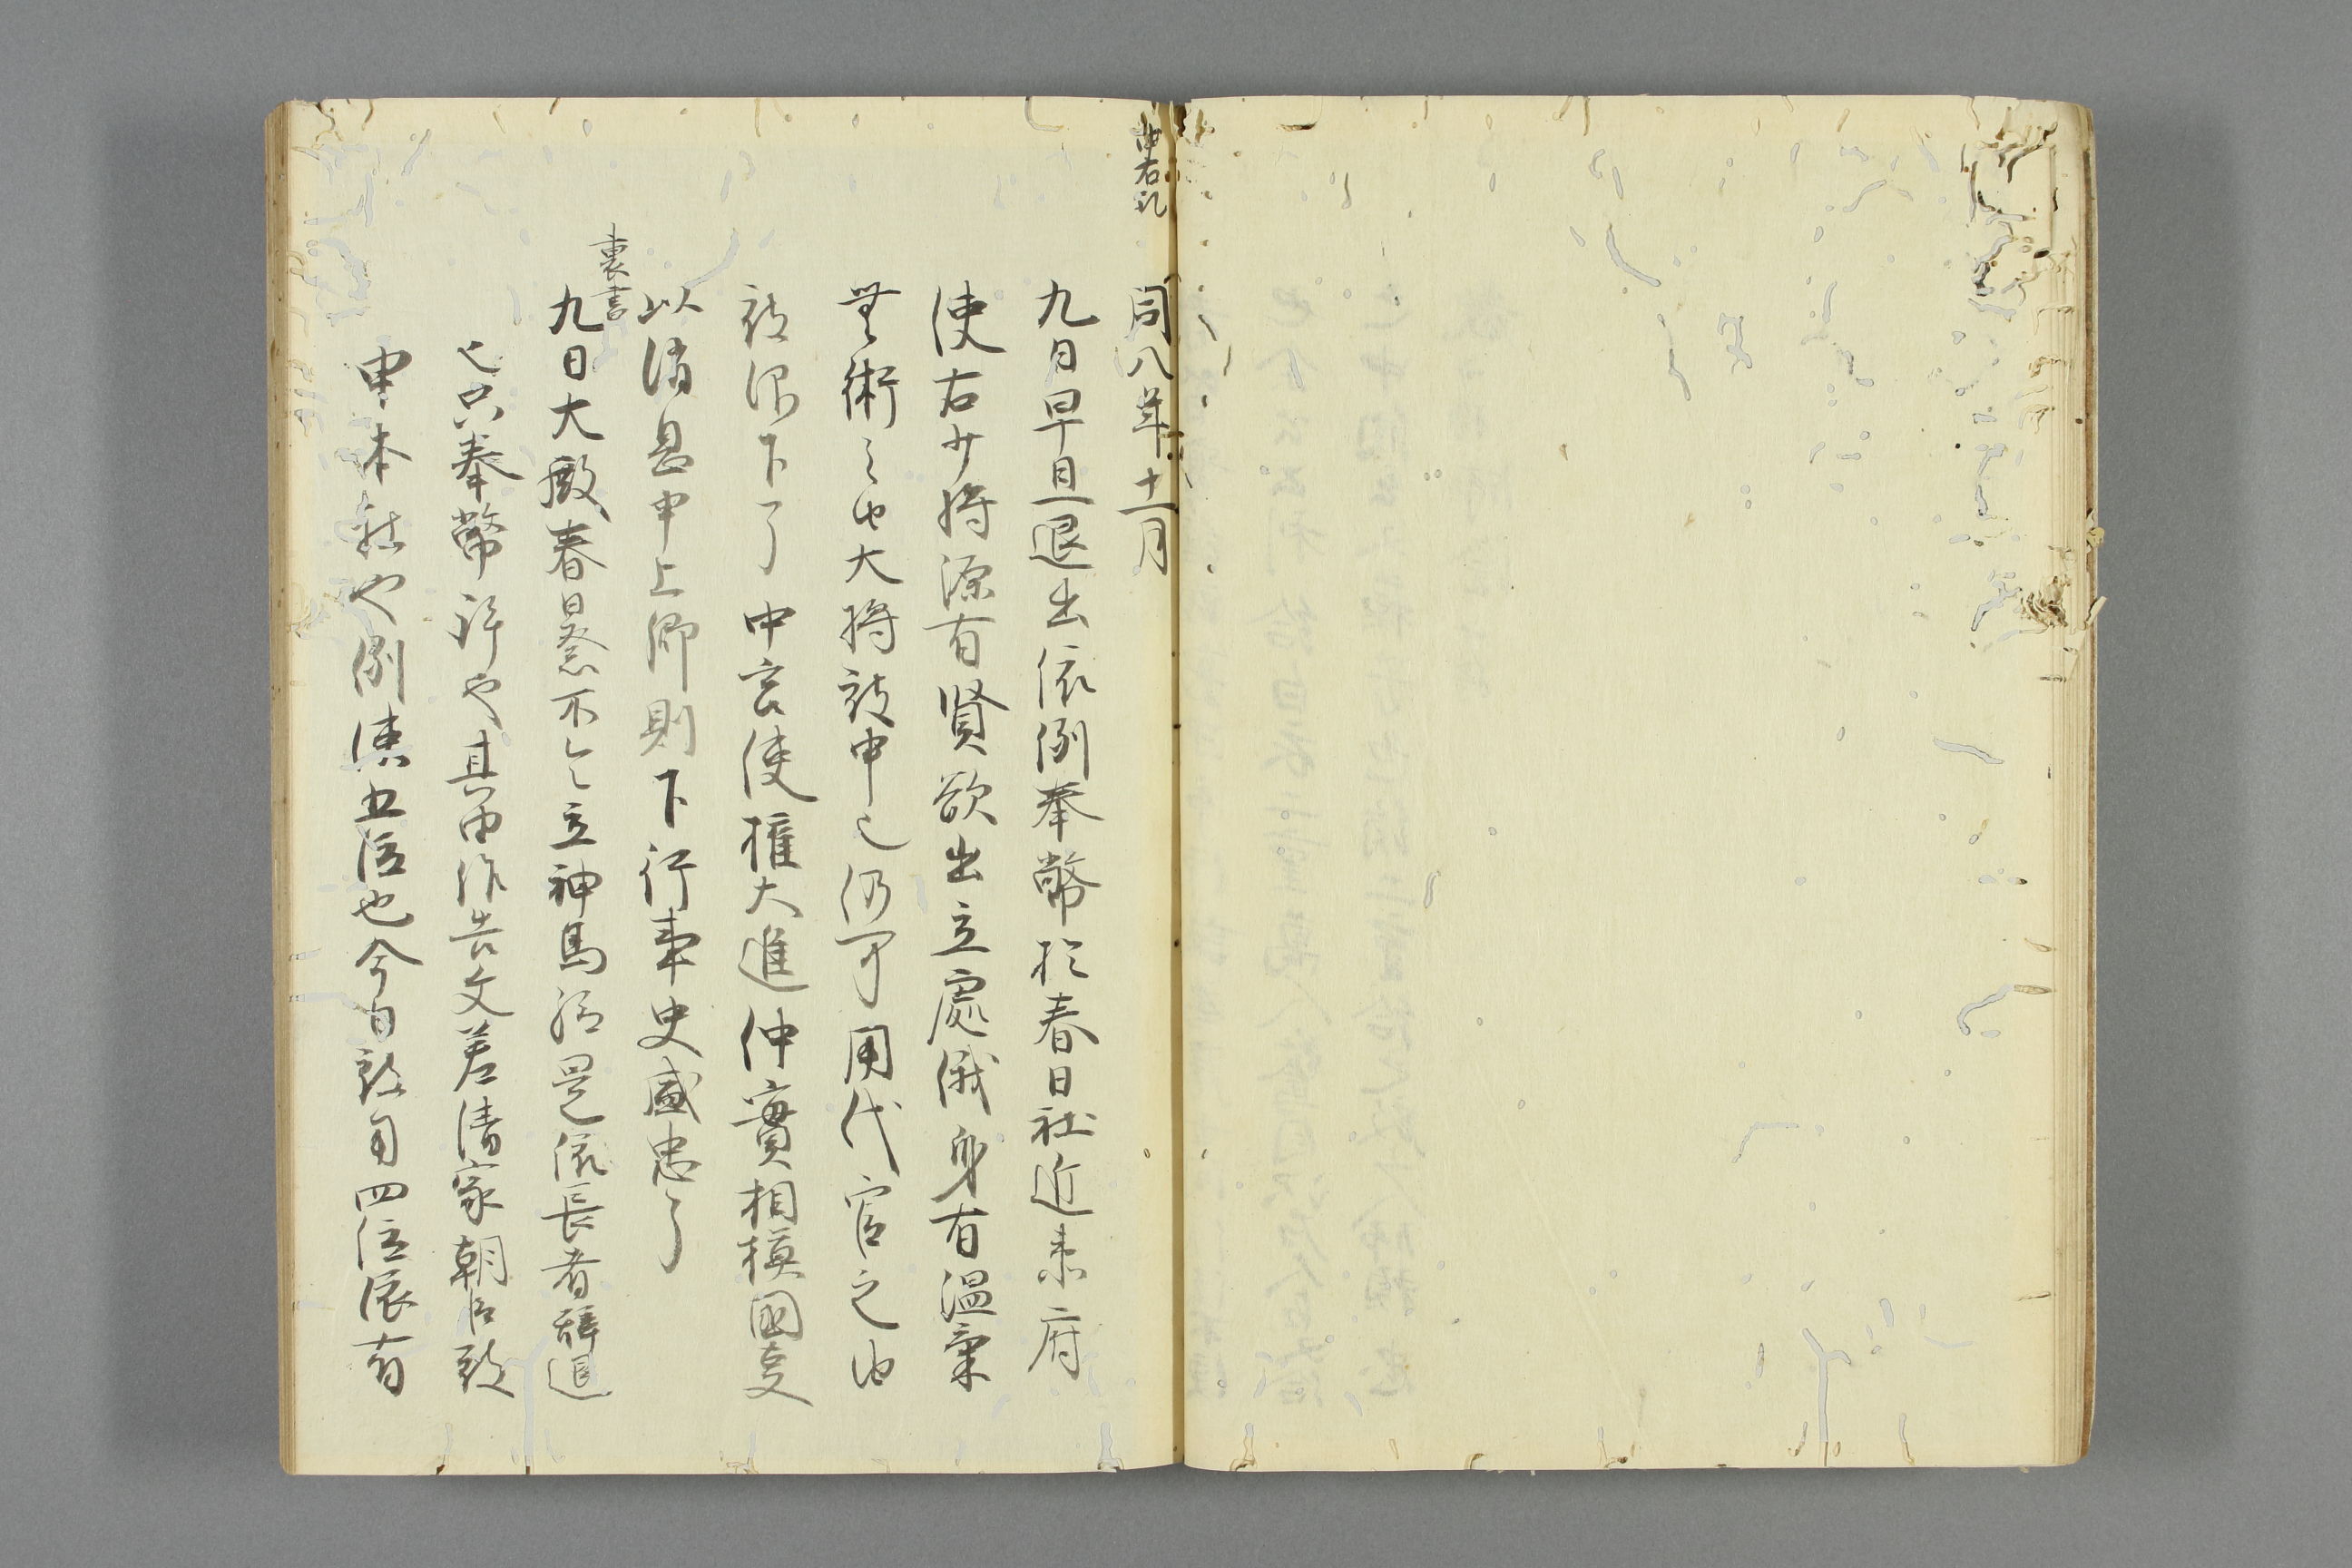 中右記
同八年十一月
九日早旦退出依例奉幣於春日社近来府
使右少将源有賢欲出立處俄身有温氣
無術之由大将被申已仍可用代官之由
被仰下了中宮使權大進仲實相模國支
以消息申上卿則下行事史盛忠了
裏書
九日大殿春日祭不令立神馬給是依長者辞退
也只奉幣許也其由作告文差清家朝臣被
申本社也例使五位也今日被用四位依有